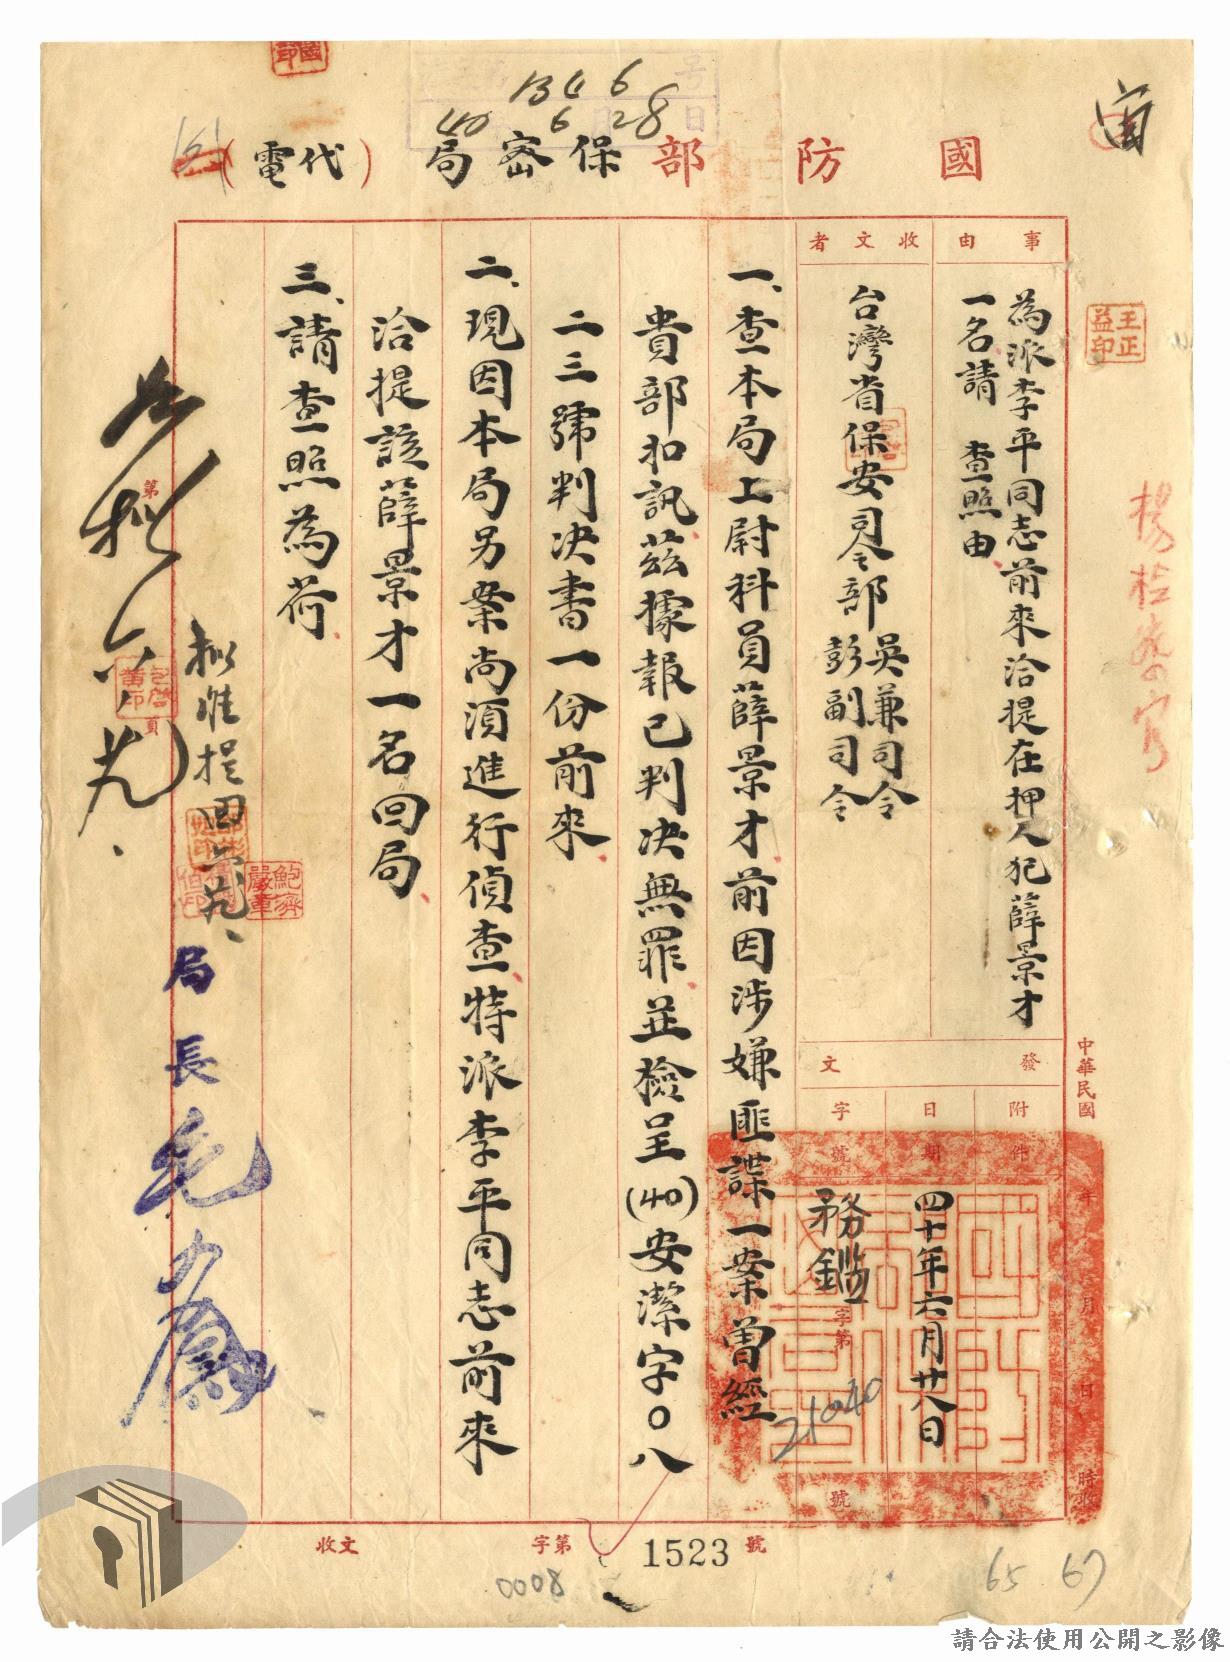 1346号
40 6月28日
國防部保密局(代電)
事由
為派李平同志前來洽提在押人犯薛景才
一名請　查照由
收文者
台灣省保安司令部吳兼司令
彭副司令
發文
附件
日期
四十年六月廿八日
字號
務鑑字第21040號
一、查本局上尉科員薛景才前因涉嫌匪諜一案曾經
貴部扣訊茲據報已判決無罪並檢呈(40)安潔字〇八
二三號判決書一份前來
二、現因本局另案尚須進行偵查特派李平同志前來
洽提該薛景才一名回局
三、請查照為荷
局長毛
擬准提回
王正益印
鮑濟嚴章
中華民國
年
月
日
時收
第
頁
收文
字第1523號
0008
65 67
請合法使用公開之影像